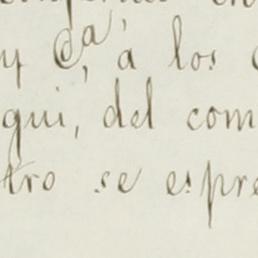 y Cª, a los
qui, del com
tro se espre